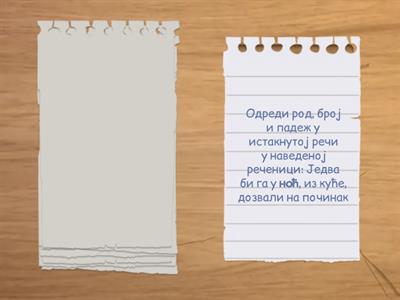 Одреди род, број
и падеж у
истакнутој речи
у наведеној
реченици: Једва
би га у ноћ, из куће,
дозвали на починак